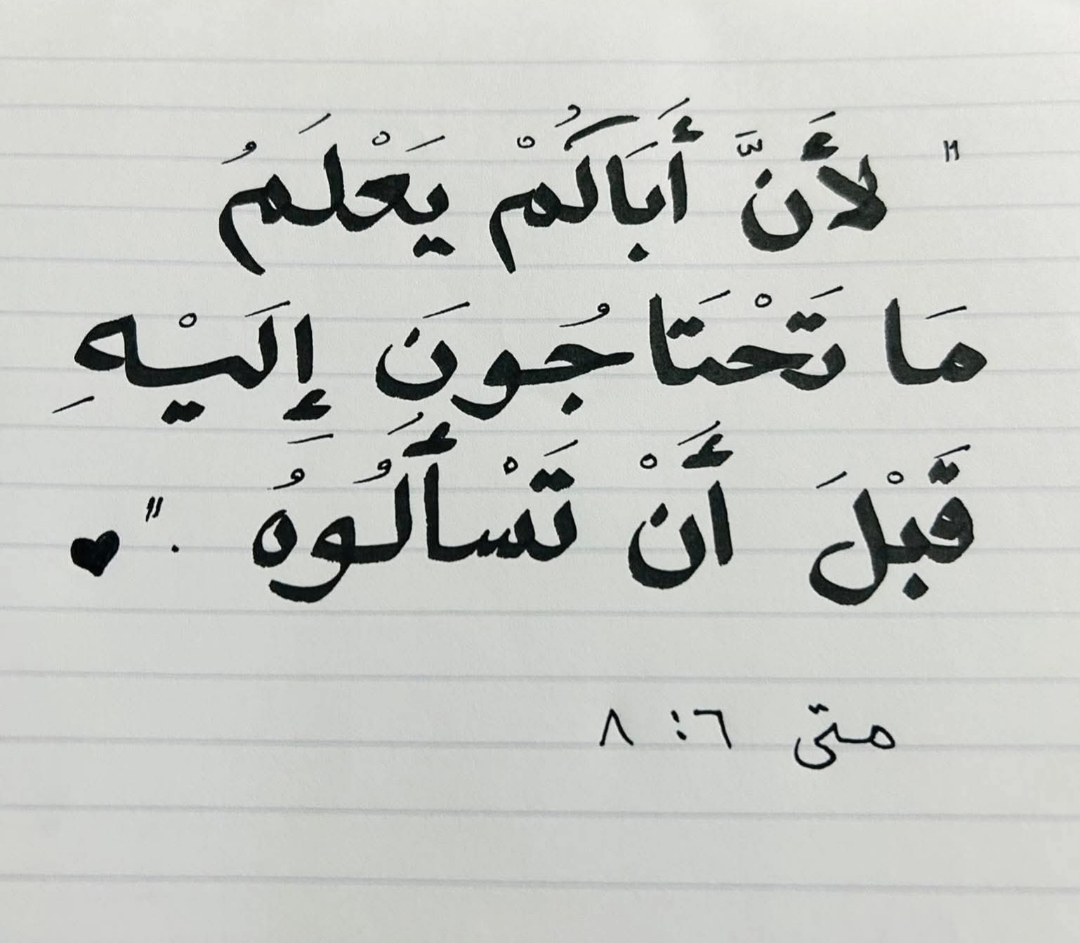 "لأَنَّ أَبَاكُمْ يَعْلَمُ
مَا تَحْتَاجُونَ إِلَيْهِ
قَبْلَ أَنْ تَسْأَلُوهُ ."
متى ٦: ٨